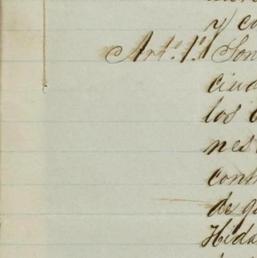 y co
Art.º 1.º Son
ciud
los
nes
cont
de q
Hida